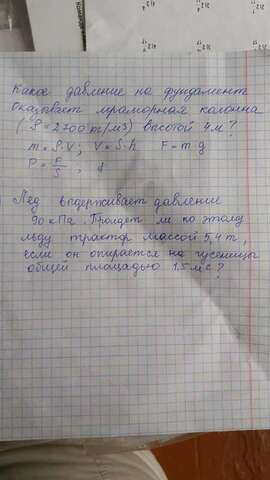 Какое давление на фундамент
оказывает мраморная колонна
(ρ = 2700 кг/м3) высотой 4 м?
m = ρ·V; V = S·h F = m·g
P = F/S,
Лед выдерживает давление
90 кПа. Пройдет ли по этому
льду трактор массой 5,4 т,
если он опирается на гусеницы
общей площадью 1.5 м²?